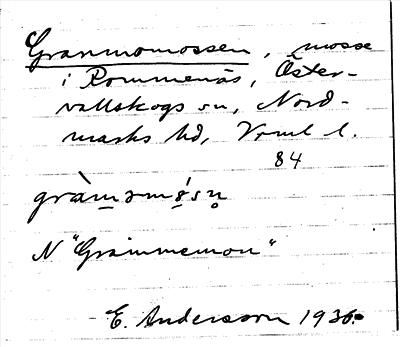 Granmomossen, mosse
i Rommenäs, Öster-
vallskogs sn, Nord-
marks hd, Vrml l.
84
gràm̲ǝmǿ̲sn̥
N "Grammemon"
E. Andersson 1936.